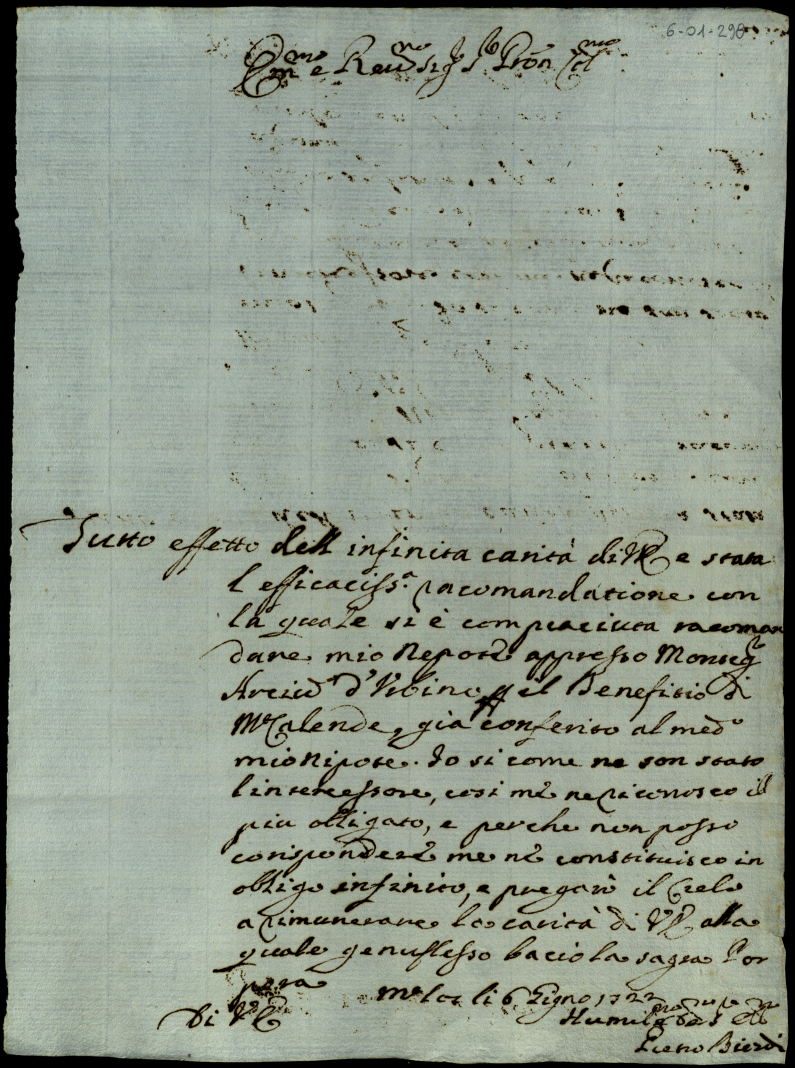 6-01-290
Em.mo e Reu.mo Sig.r P.ron Col.mo
Tutto effetto dell infinita carità di VE e stata
l efficaciss.a racomandatione con
la quale si è compiaciuta racoman
dare mio Nepote appresso Monsig.r
Arciu.o d'Vrbino p el Benefitio di
M Calende, già conferito al med.o
mio Nipote. Io si come ne son stato
l intercessore, cosi me ne riconosco il
piu obligato, e perche non posso
corispondere me ne constituisco in
obligo infinito, e pregarò il Cielo
a rimunerare la carità di VE alla
quale genuflesso bacio la sagra Por
pora
li 6 Giugno 1722
Di VE
Humil.mo
Pietro